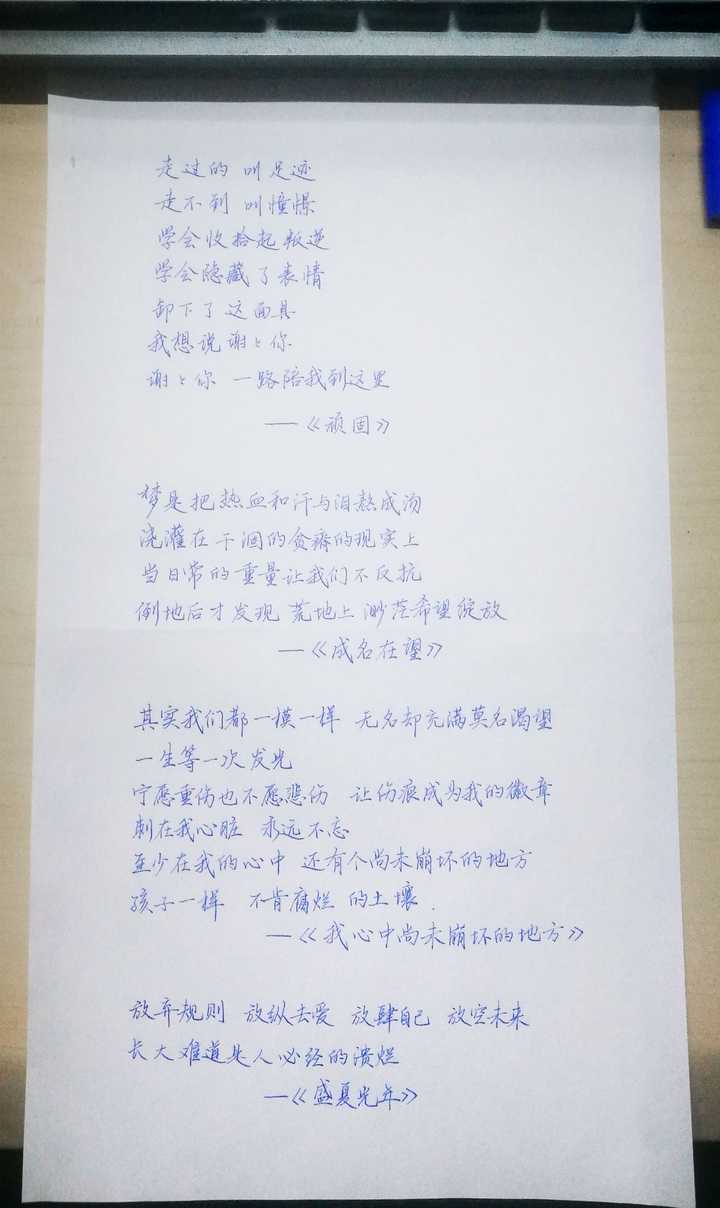 走过的 叫足迹
走不到 叫憧憬
学会收拾起叛逆
学会隐藏了表情
卸下了这面具
我想说谢々你
谢々你 一路陪我到这里
—《顽固》
梦是把热血和汗与泪熬成汤
浇灌在干涸的贫瘠的现实上
当日常的重量让我们不反抗
倒地后才发现 荒地上 渺茫希望绽放
—《成名在望》
其实我们都一模一样 无名却充满莫名渴望
一生等一次发光
宁愿重伤也不愿悲伤 让伤痕成为我的徽章
刺在我心脏 永远不忘
至少在我的心中 还有个尚未崩坏的地方
孩子一样 不肯腐烂 的土壤.
—《我心中尚未崩坏的地方》
放弃规则 放纵去爱 放肆自己 放空未来
长大难道是人必经的溃烂
—《盛夏光年》